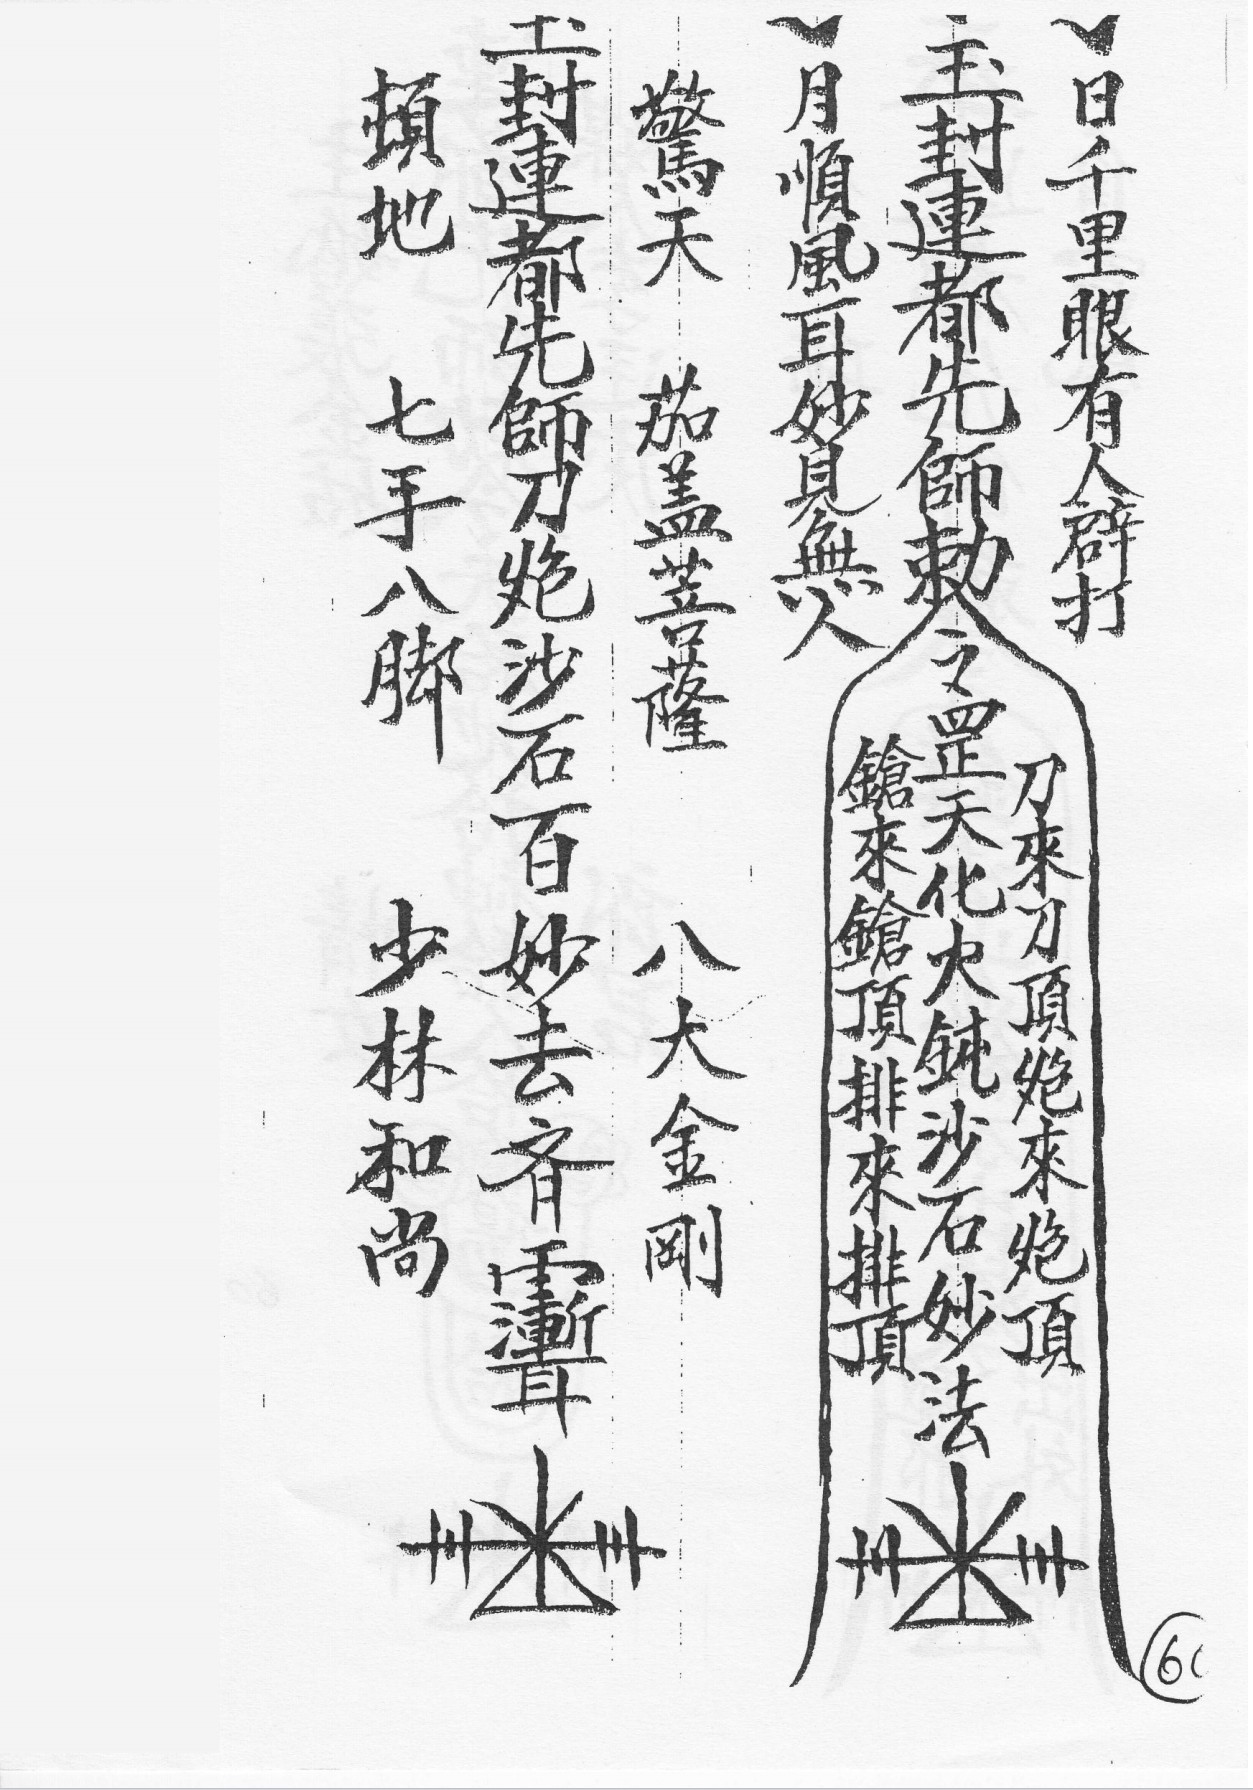 日千里眼有人辟打
玉封連都先師勅令罡天化火鈍沙石妙法
刀來刀頂炮來炮頂
鎗來鎗頂排來排頂
月順風耳妙見無人
驚天 茄盖菩薩 八大金剛
玉封連都先師刀炮沙石百妙去齐
頓地 七手八脚 少林和尚
6